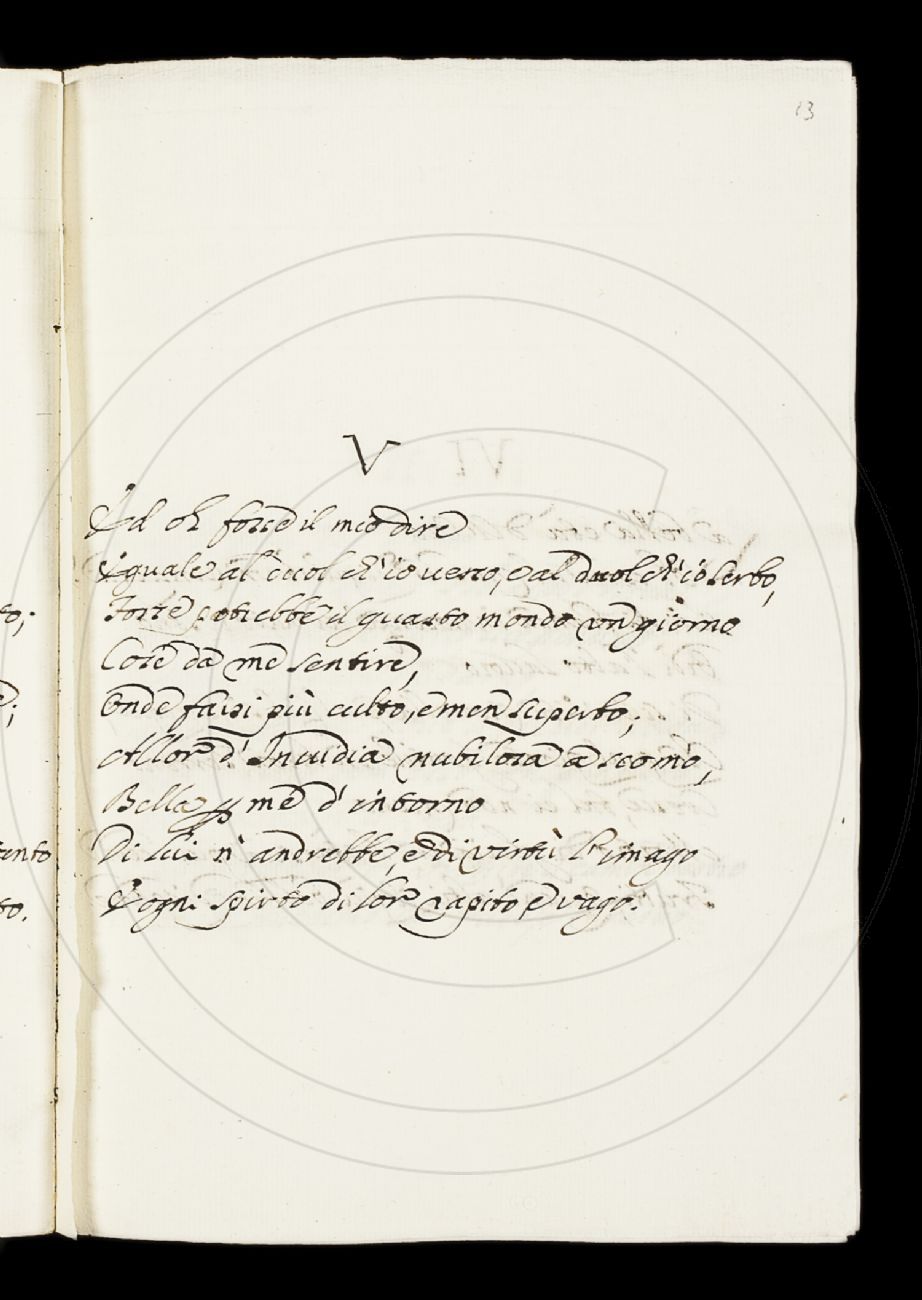 13
V
Ed oh fosse il mio dire
Eguale al ch' io verso, e al duol ch' io serbo,
Forse potrebbe il quarto mondo un giorno
Cose da me sentire,
Onde farsi più culto, e men superbo;
Allor d' Invidia nubilosa a scorno,
Bella me d' intorno
Di lui n' andrebbe, e di virtù l' imago
E ogni spirto di lor rapito, e vago.
to;
e;
tento
to.